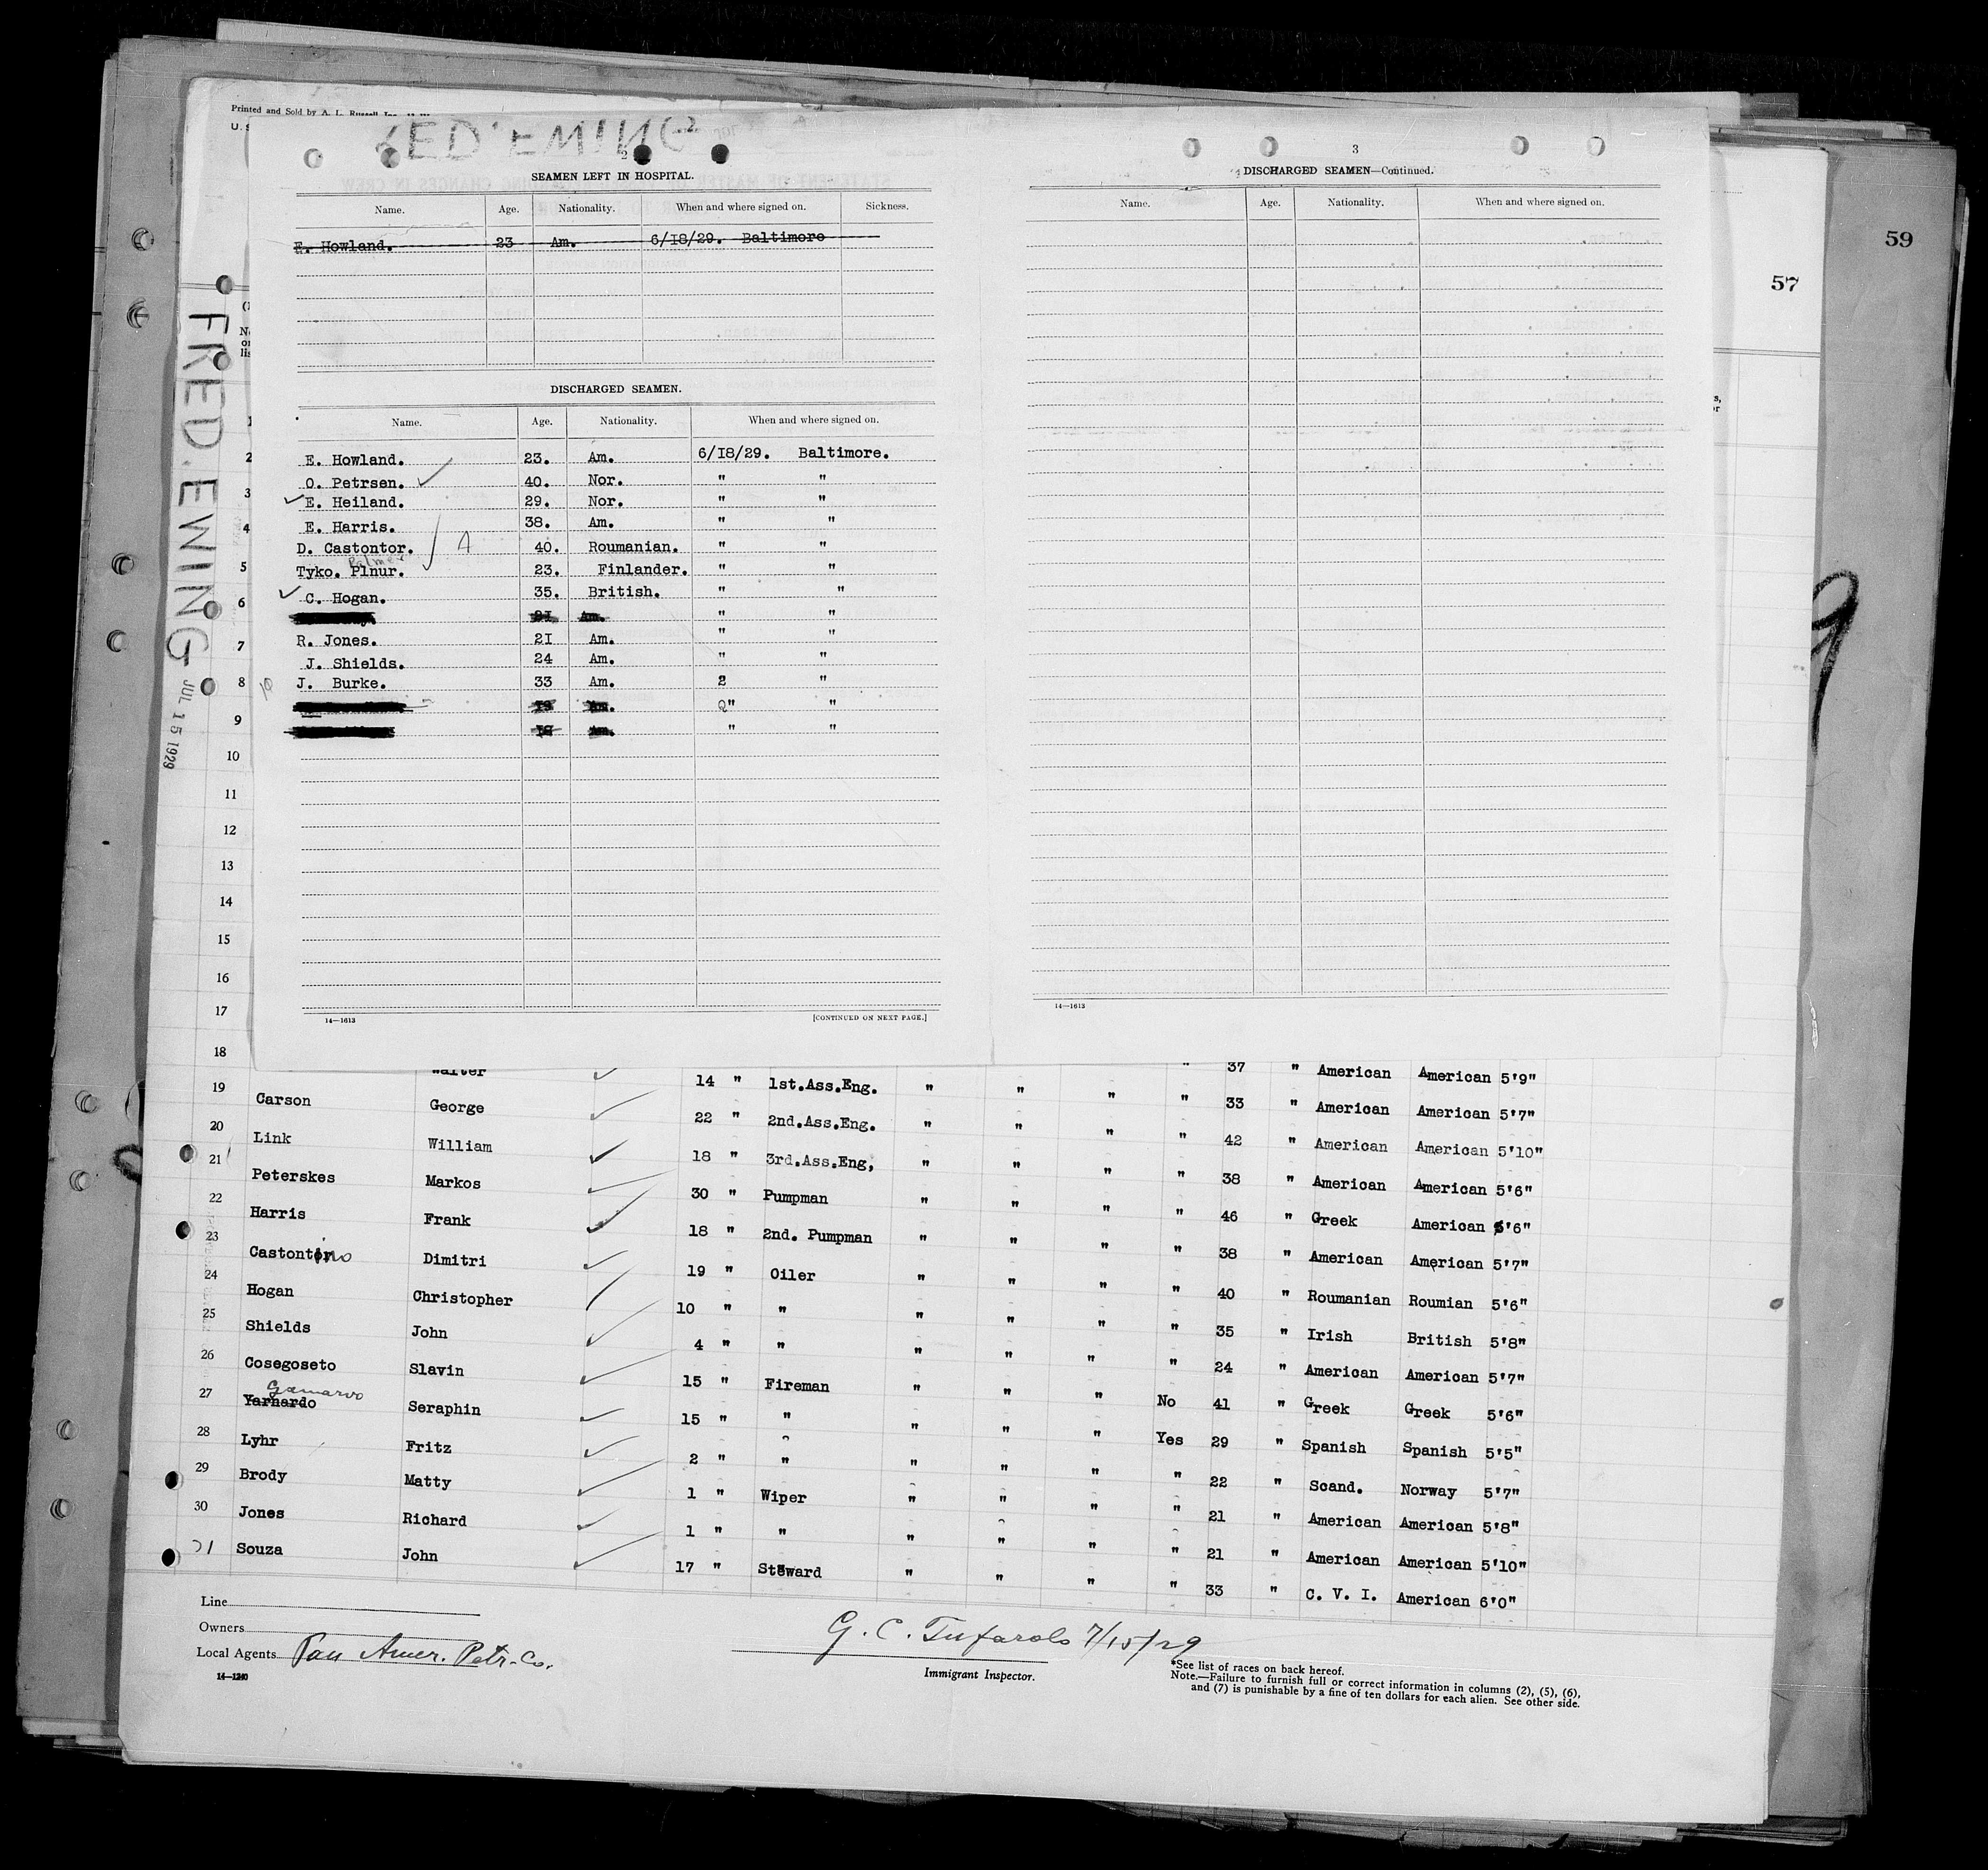 Printed and Sold by A. L. Russell Inc.
U. S
59
57
FRED. EWING
JUL 15 1929
2
SEAMEN LEFT IN HOSPITAL.
Name. Age. Nationality. When and where signed on. Sickness.
E. Howland. 23 Am. 6/18/29. Baltimore
DISCHARGED SEAMEN.
Name. Age. Nationality. When and where signed on.
E. Howland. 23. Am. 6/18/29. Baltimore.
O. Petrsen. 40. Nor. " "
E. Heiland. 29. Nor. " "
E. Harris. 38. Am. " "
D. Castontor. 40. Roumanian. " "
Palmer
Tyko. Plnur. 23. Finlander. " "
C. Hogan. 35. British. " "
21 Am. " "
R. Jones. 21 Am. " "
J. Shields. 24 Am. " "
J. Burke. 33 Am. 2 "
19 Am. Q" "
18 Am. " "
14—1613 [CONTINUED ON NEXT PAGE.]
3
DISCHARGED SEAMEN—Continued.
Name. Age. Nationality. When and where signed on.
14—1613
1
2
3
4
5
6
7
8
9
10
11
12
13
14
15
16
17
18 Walter 14 " 1st.Ass.Eng. " " " " 37 " American American 5'9"
19 Carson George 22 " 2nd.Ass.Eng. " " " " 33 " American American 5'7"
20 Link William 18 " 3rd.Ass.Eng, " " " " 42 " American American 5'10"
21 Peterskes Markos 30 " Pumpman " " " " 38 " American American 5'6"
22 Harris Frank 18 " 2nd. Pumpman " " " " 46 " Greek American 5'6"
23 Castontino Dimitri 19 " Oiler " " " " 38 " American American 5'7"
24 Hogan Christopher 10 " " " " " " 40 " Roumanian Roumian 5'6"
25 Shields John 4 " " " " " " 35 " Irish British 5'8"
26 Cosegoseto Slavin 15 " Fireman " " " " 24 " American American 5'7"
Gamarvo
27 Yarnardo Seraphin 15 " " " " " No 41 " Greek Greek 5'6"
28 Lyhr Fritz 2 " " " " " Yes 29 " Spanish Spanish 5'5"
29 Brody Matty 1 " Wiper " " " " 22 " Scand. Norway 5'7"
30 Jones Richard 1 " " " " " " 21 " American American 5'8"
31 Souza John 17 " Steward " " " " 21 " American American 5'10"
33 " C. V. I. American 6'0"
Line
Owners
Local Agents Pan Amer. Petr. Co.
14—1240
G. C. Tufarolo 7/15/29
Immigrant Inspector.
*See list of races on back hereof.
Note.—Failure to furnish full or correct information in columns (2), (5), (6),
and (7) is punishable by a fine of ten dollars for each alien. See other side.